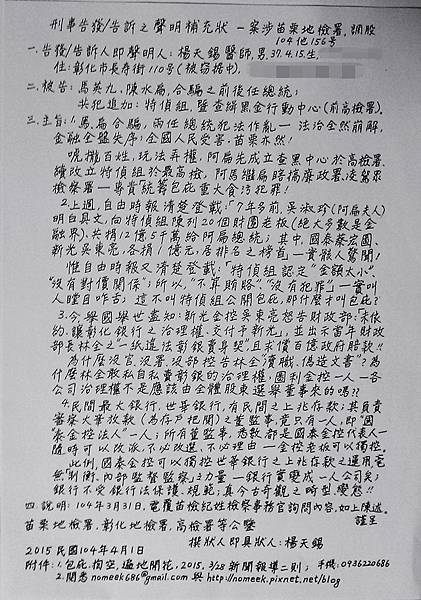 刑事告發/告訴之聲明補充狀 一案涉苗栗地檢署,調股
104他156号
一.告發/告訴人即聲明人: 楊天錫醫師,男.37.4.15.生,
住:彰化市長寿街110号(被竊据中).
二.被告: 馬英九,陳水扁,合騙之前後任總統;
共犯追加: 特偵組,暨查緝黑金行動中心(前高檢署).
三.主旨:1.馬扁合騙,兩任總統犯法作亂— 法治全然崩解,
金融全盤失序;全國人民受害,苗栗亦然!
唬攏百姓,玩法弄權,阿扁先成立查黑中心於高檢署,
續改立特偵組於最高檢,阿馬繼扁賂搞廉政署,凌駕眾
檢察署—專責"統籌包庇重大貪污犯罪!
2.上週,自由時報清楚登載:「7年多前,吳淑珍(阿扁夫人)
明白具文,向特偵組陳列20個財團老板(絕大多數是金
融界),共捐12億5千萬給阿扁總統; 其中,國泰蔡宏圖,
新光吳東亮,各捐1億元,居排名之榜首—實駭人驚聞!
惟自由時報又清楚登載:「特偵組認定"金額大小",
"沒有對價關係";所以,"不算賄賂","沒有犯罪"」—實叫
人瞠目咋舌; 這不叫特偵組公開包庇,那什麼才叫包庇?
3.今,舉國舉世盡知: 新光金控吳東亮怒告財政部:「未依
約,讓彰化銀行之治理權,交付予新光」, 並出示當年財政
部長林全之"一紙違法彰銀賣身契",且求償百億政府賠款!!
為什麼沒官,沒署,沒部控告林全「瀆職、偽造文書」?為
什麼林全敢私自私賣彰銀的治理權;圖利金控一人—各
公司治理權不是應該由全體股東選舉董事來的嗎??
4.民間最大銀行,世華銀行,有民間之上兆存款; 其負責
審察大筆放款(為存戶把関)之董監事,竟只有一人,即「國
泰金控法人」一人; 所有董監事,悉數都是國泰金控代表人—
隨時可以改派,不必改選,不必理由—金控老板可以獨控.
此例,國泰金控可以獨控世華銀行之上兆存款之運用,毫
無「制衡、內部監督監察」之力量—銀行實變成一人公司矣;
銀行不受銀行法保護、規範; 真今古奇觀之畸型、變態!!
四.說明: 104年3月31日,電覆苗檢紀姓檢察事務官詢問內容,如上陳述.
謹呈
苗栗地檢署,彰化地檢署,高檢署等公鑒
撰狀人即具狀人: 楊天錫
2015民國104年4月1日
附件: 1.包庇掏空,遍地開花,2015. 3/28新聞報導二則; 手機:0936220686
2.閱悉nomeek686@gmail.com與http://nomeek.pixnet.net/blog